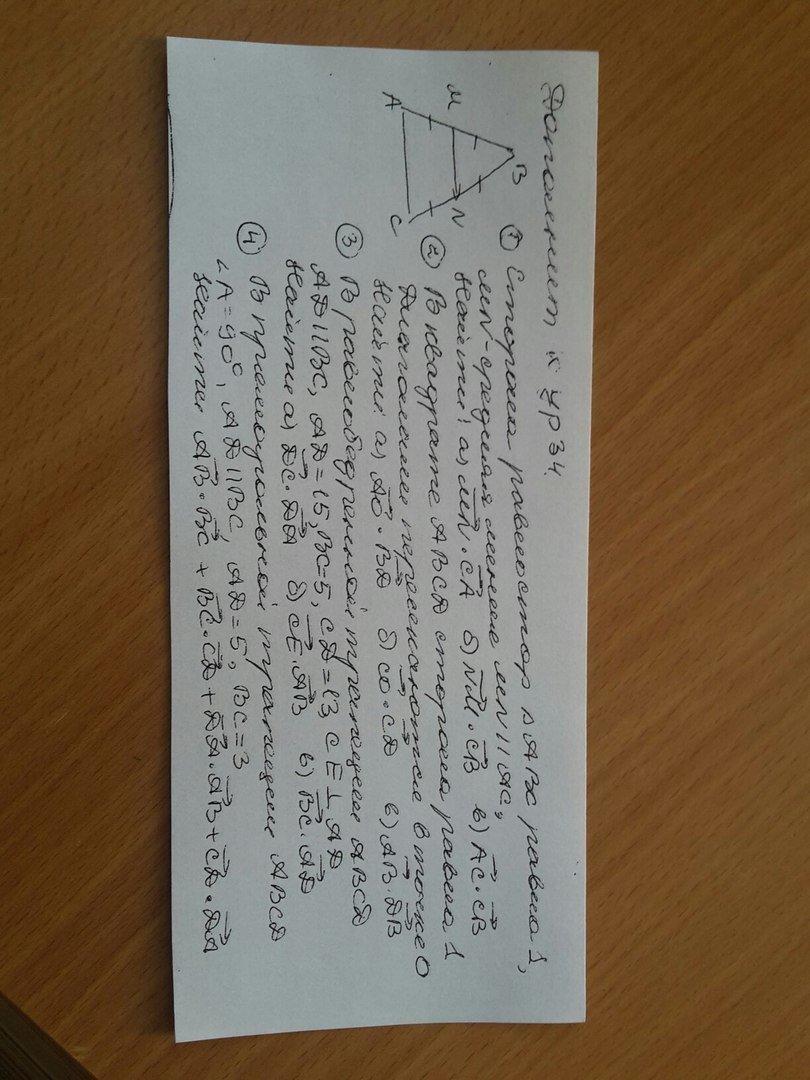 Дополнит к ур 34
① Сторона равностор △ABC равна 1,
MN-средняя линия MN||AC,
Найти: а) MN·CA б) NM·CB в) AC·CB
B
M
N
A
C
② В квадрате ABCD сторона равна 1
Диагонали пересекаются в точке O
Найти: а) AO·BD б) CO·CD в) AB·DB
③ В равнобедренной трапеции ABCD
AD||BC, AD=15, BC=5, CD=13, CE⊥AD
Найти а) DC·DA б) CE·AB в) BC·AD
④ В прямоугольной трапеции ABCD
∠A=90°, AD||BC, AD=5, BC=3
Найти AB·BC + BC·CD + DA·AB + CD·DA